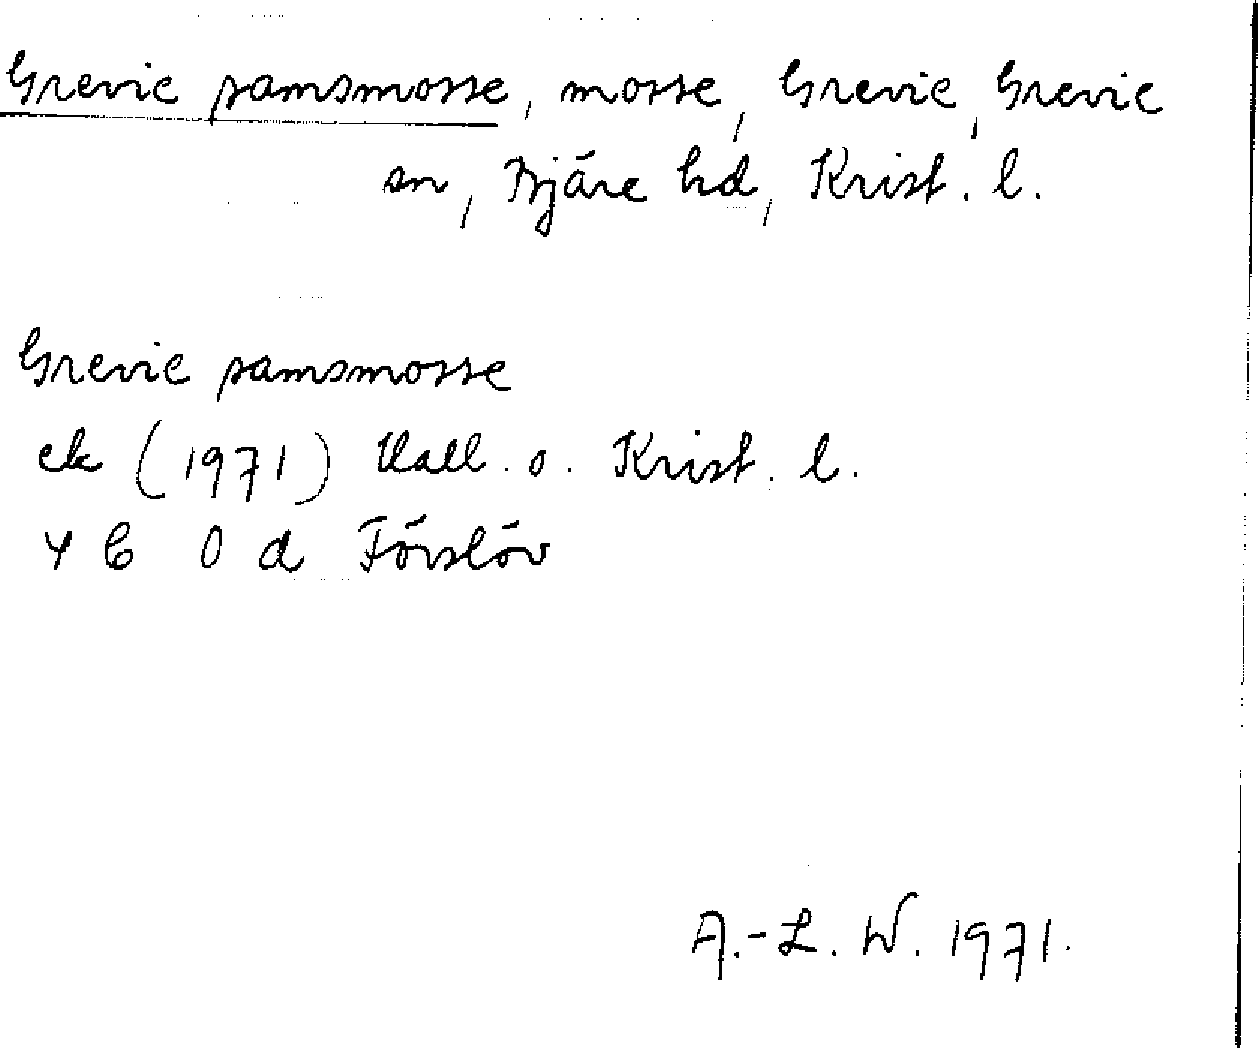 Grevie ramsmosse, mosse, Grevie, Grevie
sn, Bjäre hd, Krist. l.
Grevie ramsmosse
ek (1971) Hall. o. Krist. l.
4 C 0 d Förslöv
A.-L. W. 1971.